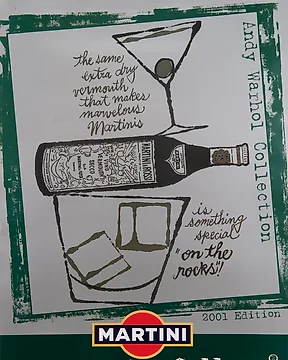 the same
extra dry
vermouth
that makes
marvelous
Martinis
Andy Warhol Collection
MARTINI & ROSSI
is
something
special
"on the
rocks"!
2001 Edition
MARTINI